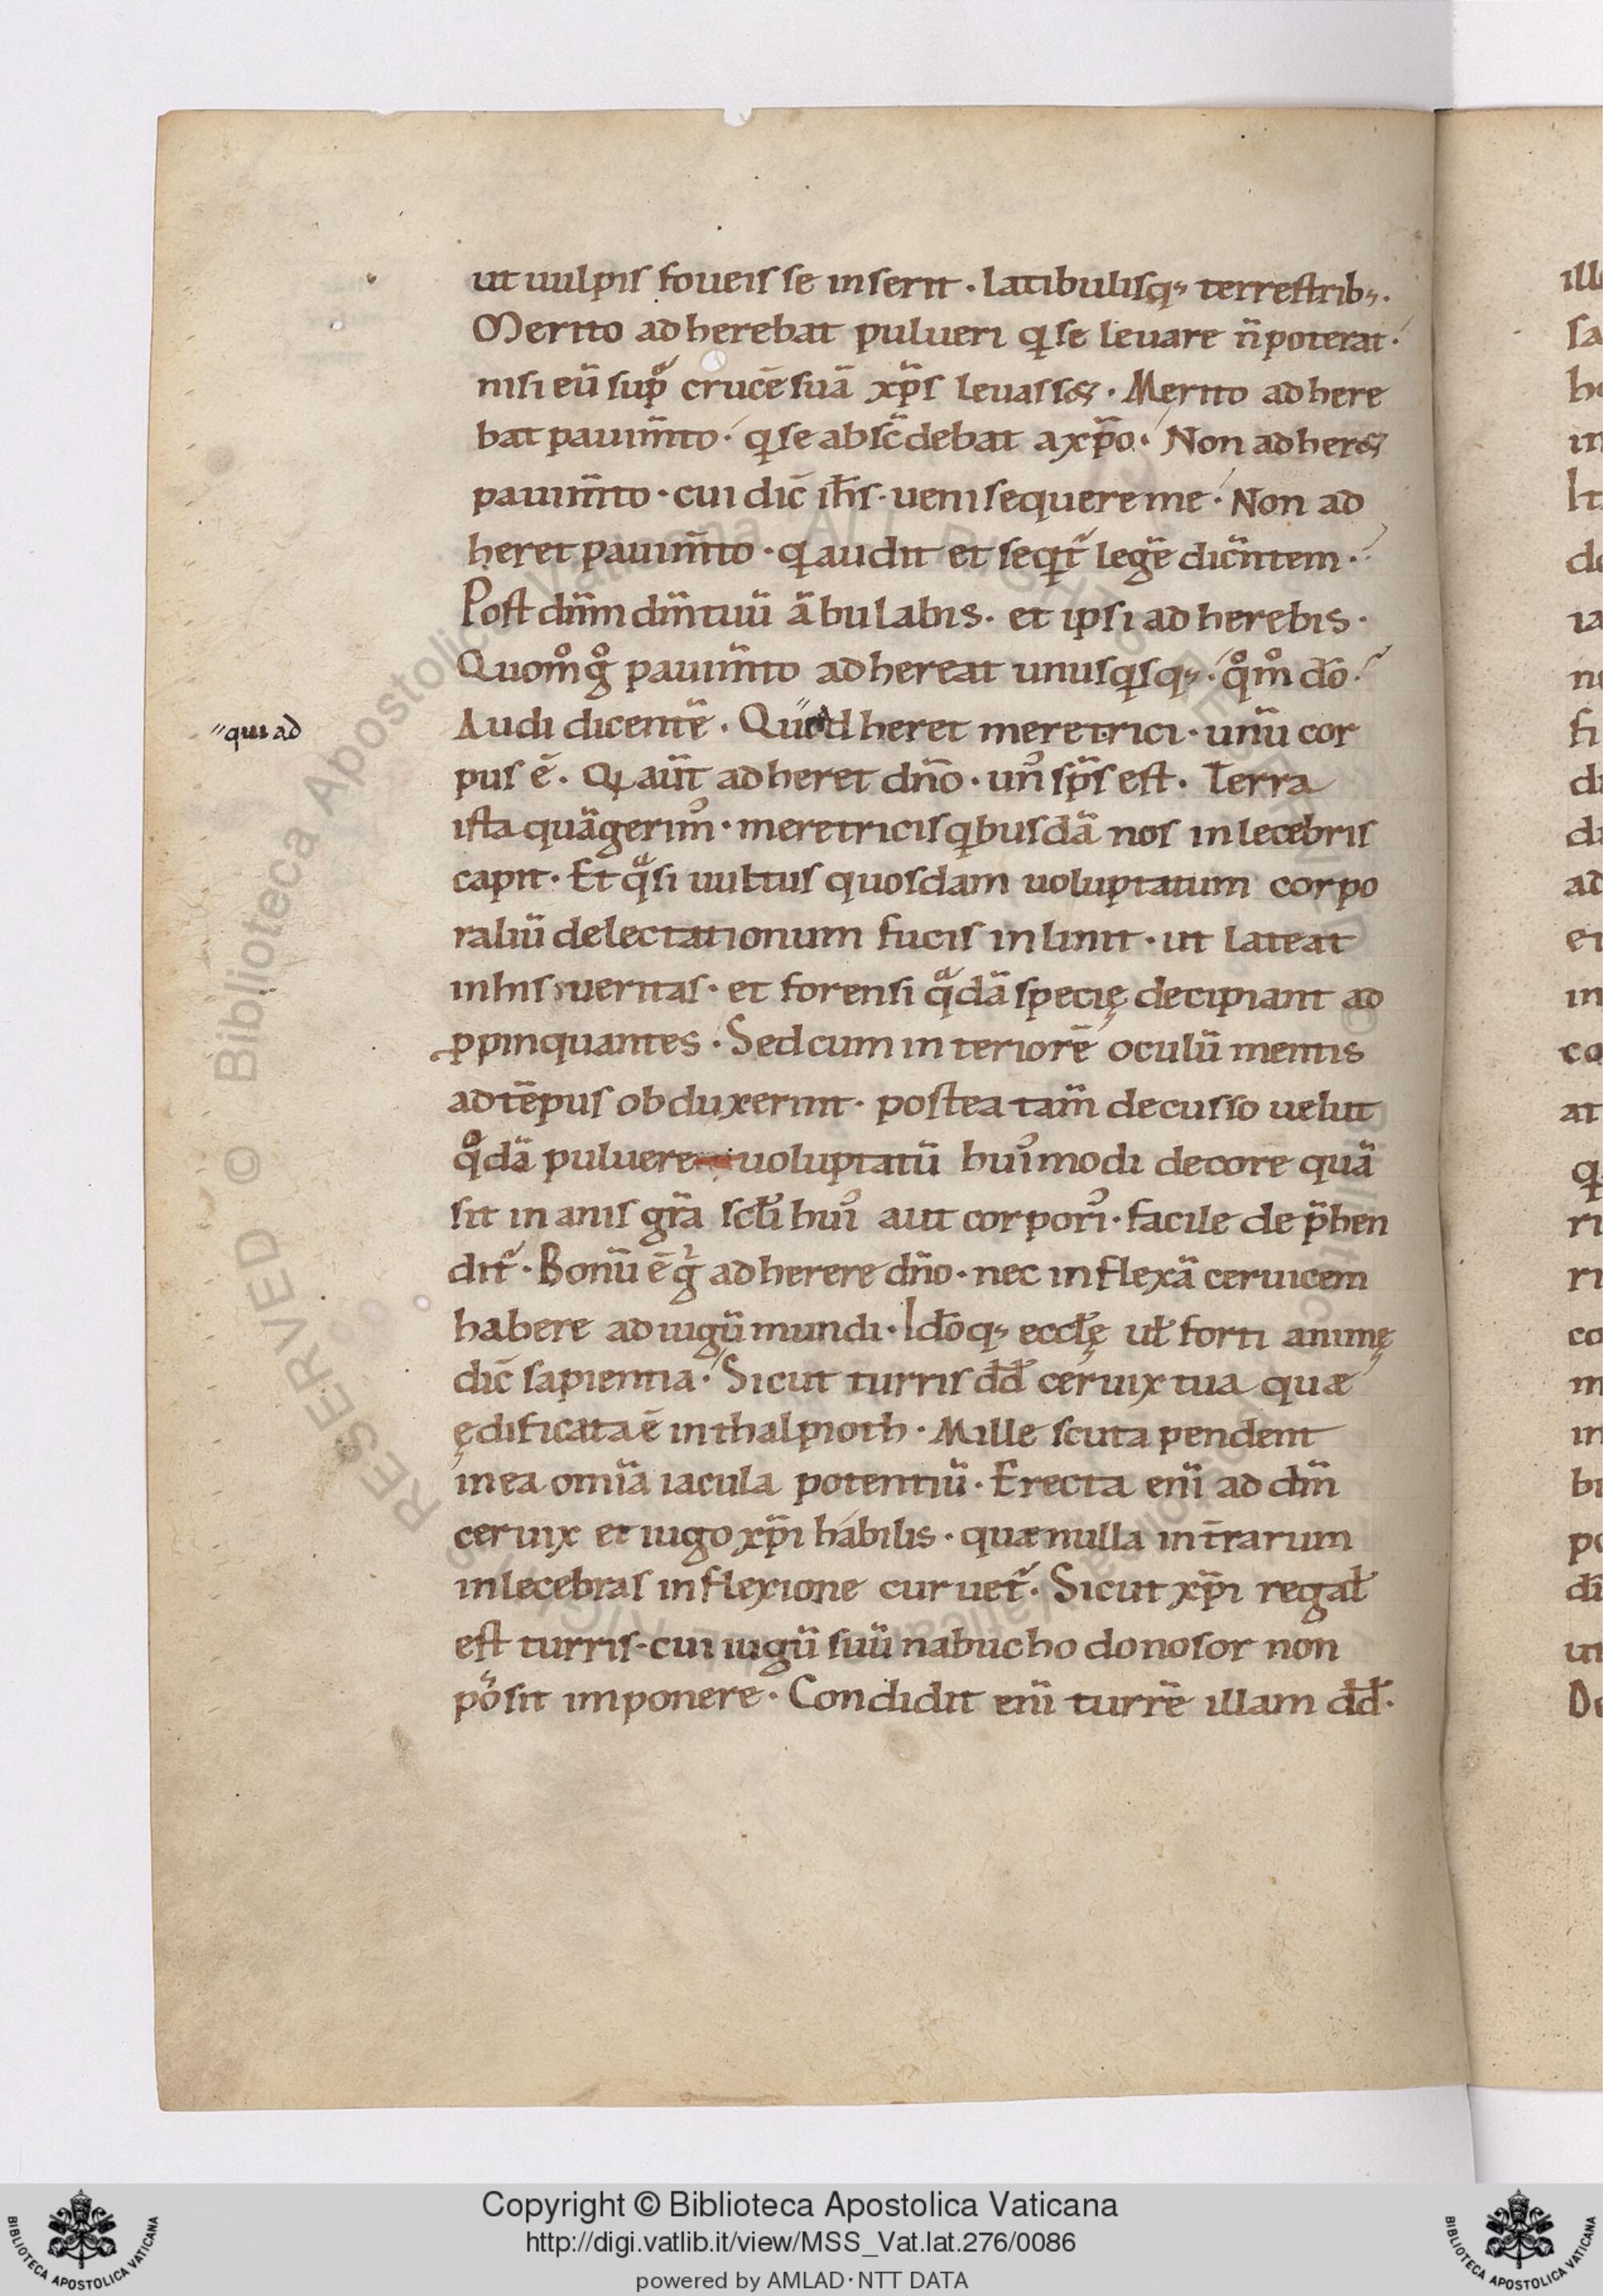 ut uulpis foueis se inserit · latibulisq; terrestrib;.
Merito adherebat pulueri q se leuare n̄ poterat·
nisi eū sup crucē suā xp̄s leuass&. Merito adhere
bat pauim̄to· q se absc̄debat a xp̄o· Non adher&
pauim̄to · cui dic̄ ih̄s· ueni sequere me· Non ad
heret pauim̄to · q audit et seqt̃ legē dic̄ntem·
Post dn̄m dm̄ tuū ābulabis· et ipsi adherebis·
Quom̊g̊ pauim̄to adhereat unusqsq; · q̊m̊ do̅·
"qui ad
Audi dicentē · Qui"adheret meretrici· unū cor
pus ē. Q aūt adheret dn̄o · un᾽ sp̄s est · Terra
ista quā gerim᾽· meretriciis qbusdā nos inlecebris
capit · Et qͣsi uultus quosdam uoluptatum corpo
raliū delectationum fucis inlinit · ut lateat
in his ueritas · et forensi qͣdā specię decipiant ad
ꝓpinquantes · Sed cum interiorē oculū mentis
ad tēpus obduxerint· postea tam̄ decusso uelut
q̊dā puluere uoluptatū hui᾽modi decore quā
sit inanis gr̄a scl̄i hui᾽ aut corpori᾽· facile dep̄hen
dit̃· Bonū ē g̍ adherere dn̄o· nec inflexā ceruicem
habere ad iugū mundi · Ido̅q; eccl̄ę ul̄ forti animę
dic̄ sapientia · Sicut turris dd̄ ceruix tua quæ
ędificata ē in thalpioth · Mille scuta pendent
in ea omīa iacula potentiū · Erecta enī ad dm̄
ceruix et iugo xp̄i habilis · quæ nulla int̄rarum
inlecebras inflexione curuet̃· Sicut xp̄i regal̄
est turris · cui iugū suū nabuchodonosor non
po᾽sit imponere · Condidit enī turrē illam dd̄·
ill
sa
h
in
lt
do
ia
n
fi
d
d
ad
ei
in
co
at
q
ri
ri
co
m
in
b
po
di
un
D
RESERVED © Biblioteca Apostolica Vaticana ALL RIGHTS RESERVED
Copyright © Biblioteca Apostolica Vaticana
http://digi.vatlib.it/view/MSS_Vat.lat.276/0086
powered by AMLAD·NTT DATA
BIBLIOTECA APOSTOLICA VATICANA
BIBLIOTECA APOSTOLICA VATICANA